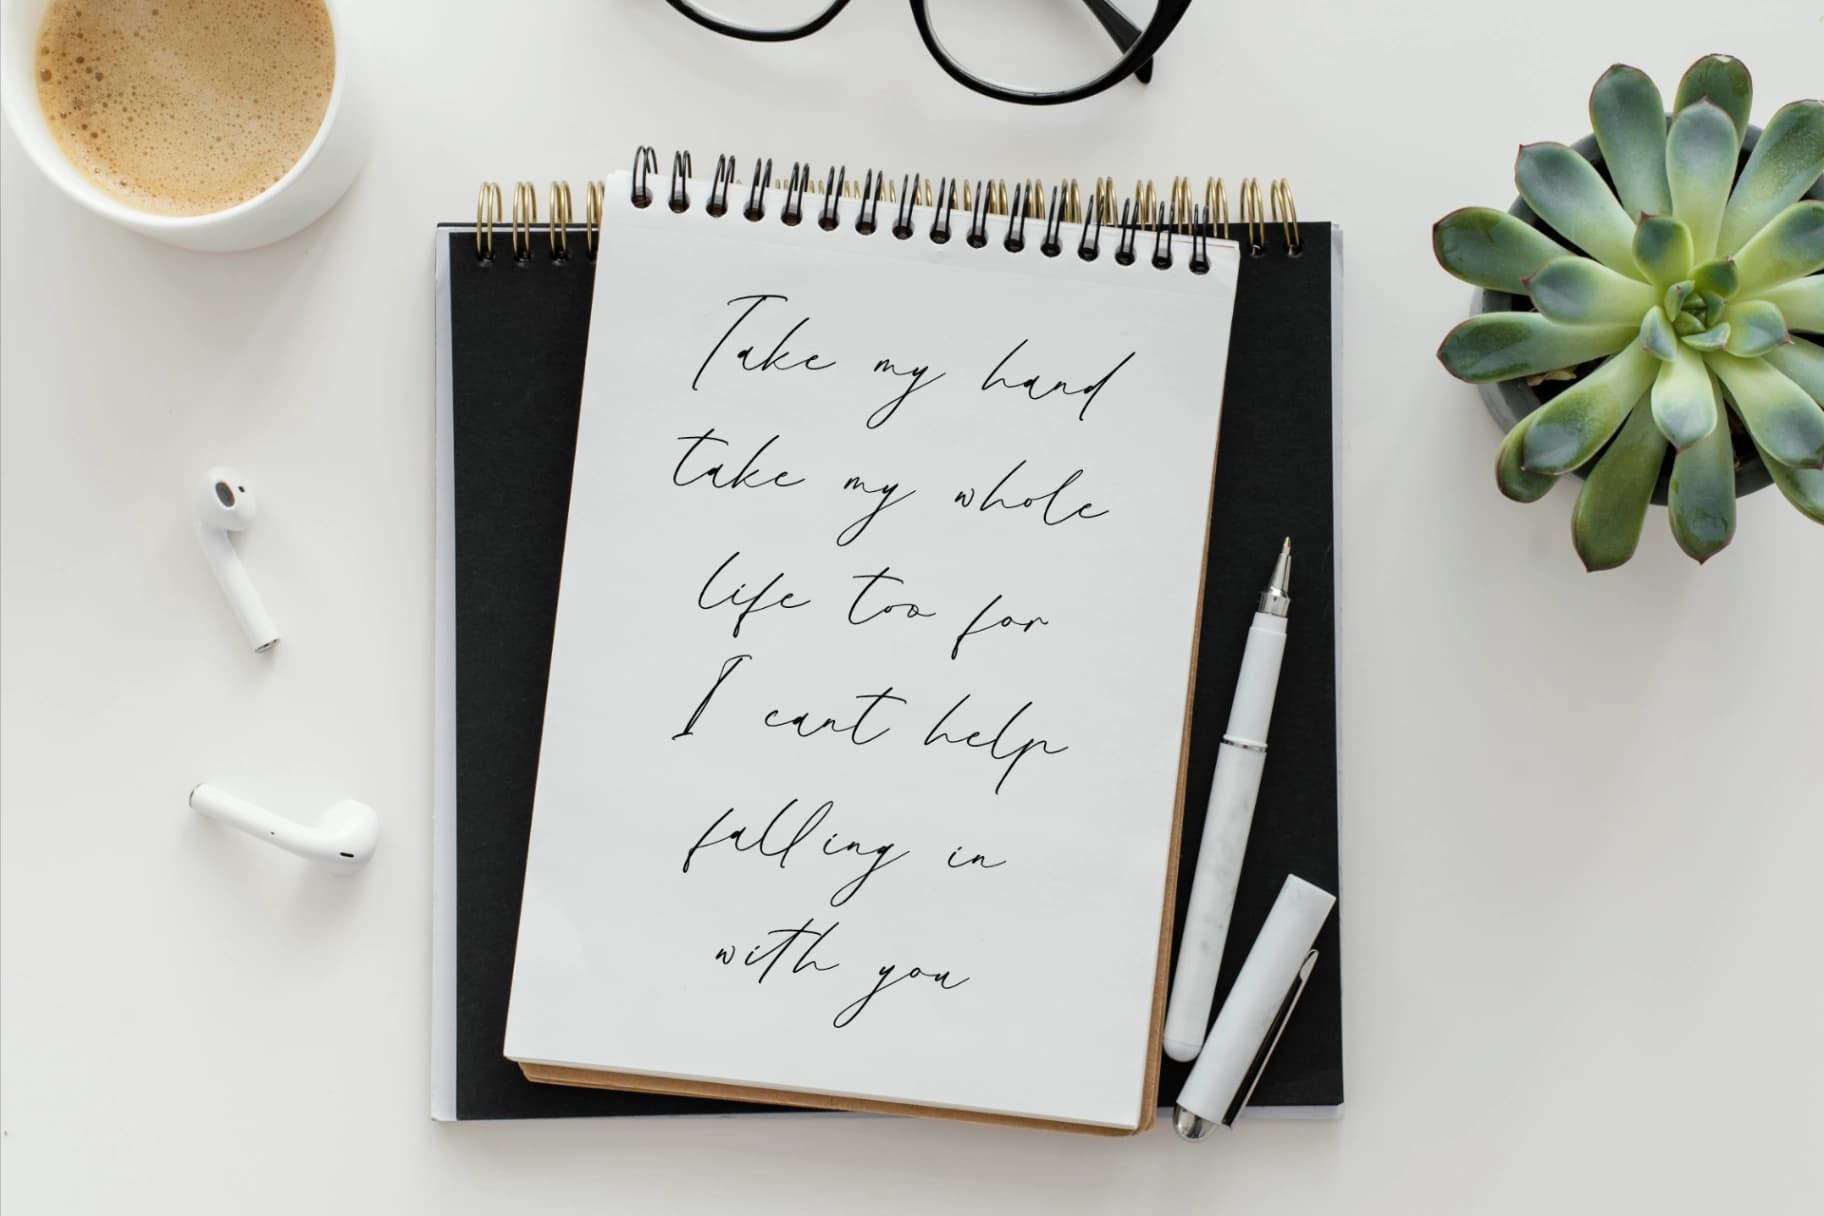 Take my hand
take my whole
life too for
I cant help
falling in
with you